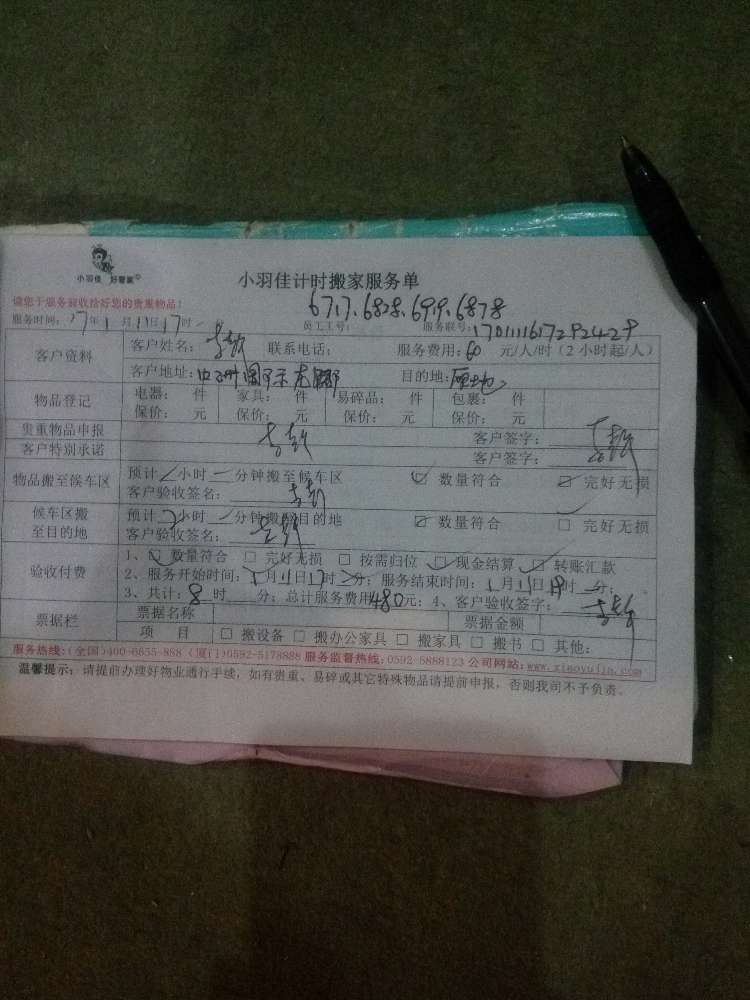 小羽佳 好管家
小羽佳计时搬家服务单
请您于服务前收拾好您的贵重物品!
6717.6828.6919.6878
服务时间: 17年1月11日17时 员工工号: 服务联号: 1701111617292429
客户资料 客户姓名: 联系电话: 服务费用: 60 元/人/时(2小时起/人)
客户地址: 目的地: 原地
物品登记 电器: 件 家具: 件 易碎品: 件 包裹: 件
保价: 元 保价: 元 保价: 元 保价: 元
贵重物品申报 客户签字:
客户特别承诺 客户签字:
物品搬至候车区 预计 小时 分钟搬至候车区 数量符合 完好无损
客户验收签名:
候车区搬至目的地 预计 小时 分钟搬至目的地 数量符合 完好无损
客户验收签名:
验收付费 1、 数量符合 完好无损 按需归位 现金结算 转账汇款
2、服务开始时间: 1月11日17时 分; 服务结束时间: 1月11日19时 分;
3、共计: 8时 分; 总计服务费用480元; 4、客户验收签字:
票据栏 票据名称 票据金额
项 目 搬设备 搬办公家具 搬家具 搬书 其他:
服务热线:(全国)400-6855-888 (厦门)0592-5178888 服务监督热线:0592-5888123 公司网站:www.xiaoyujia.com
温馨提示: 请提前办理好物业通行手续, 如有贵重、易碎或其它特殊物品请提前申报, 否则我司不予负责。